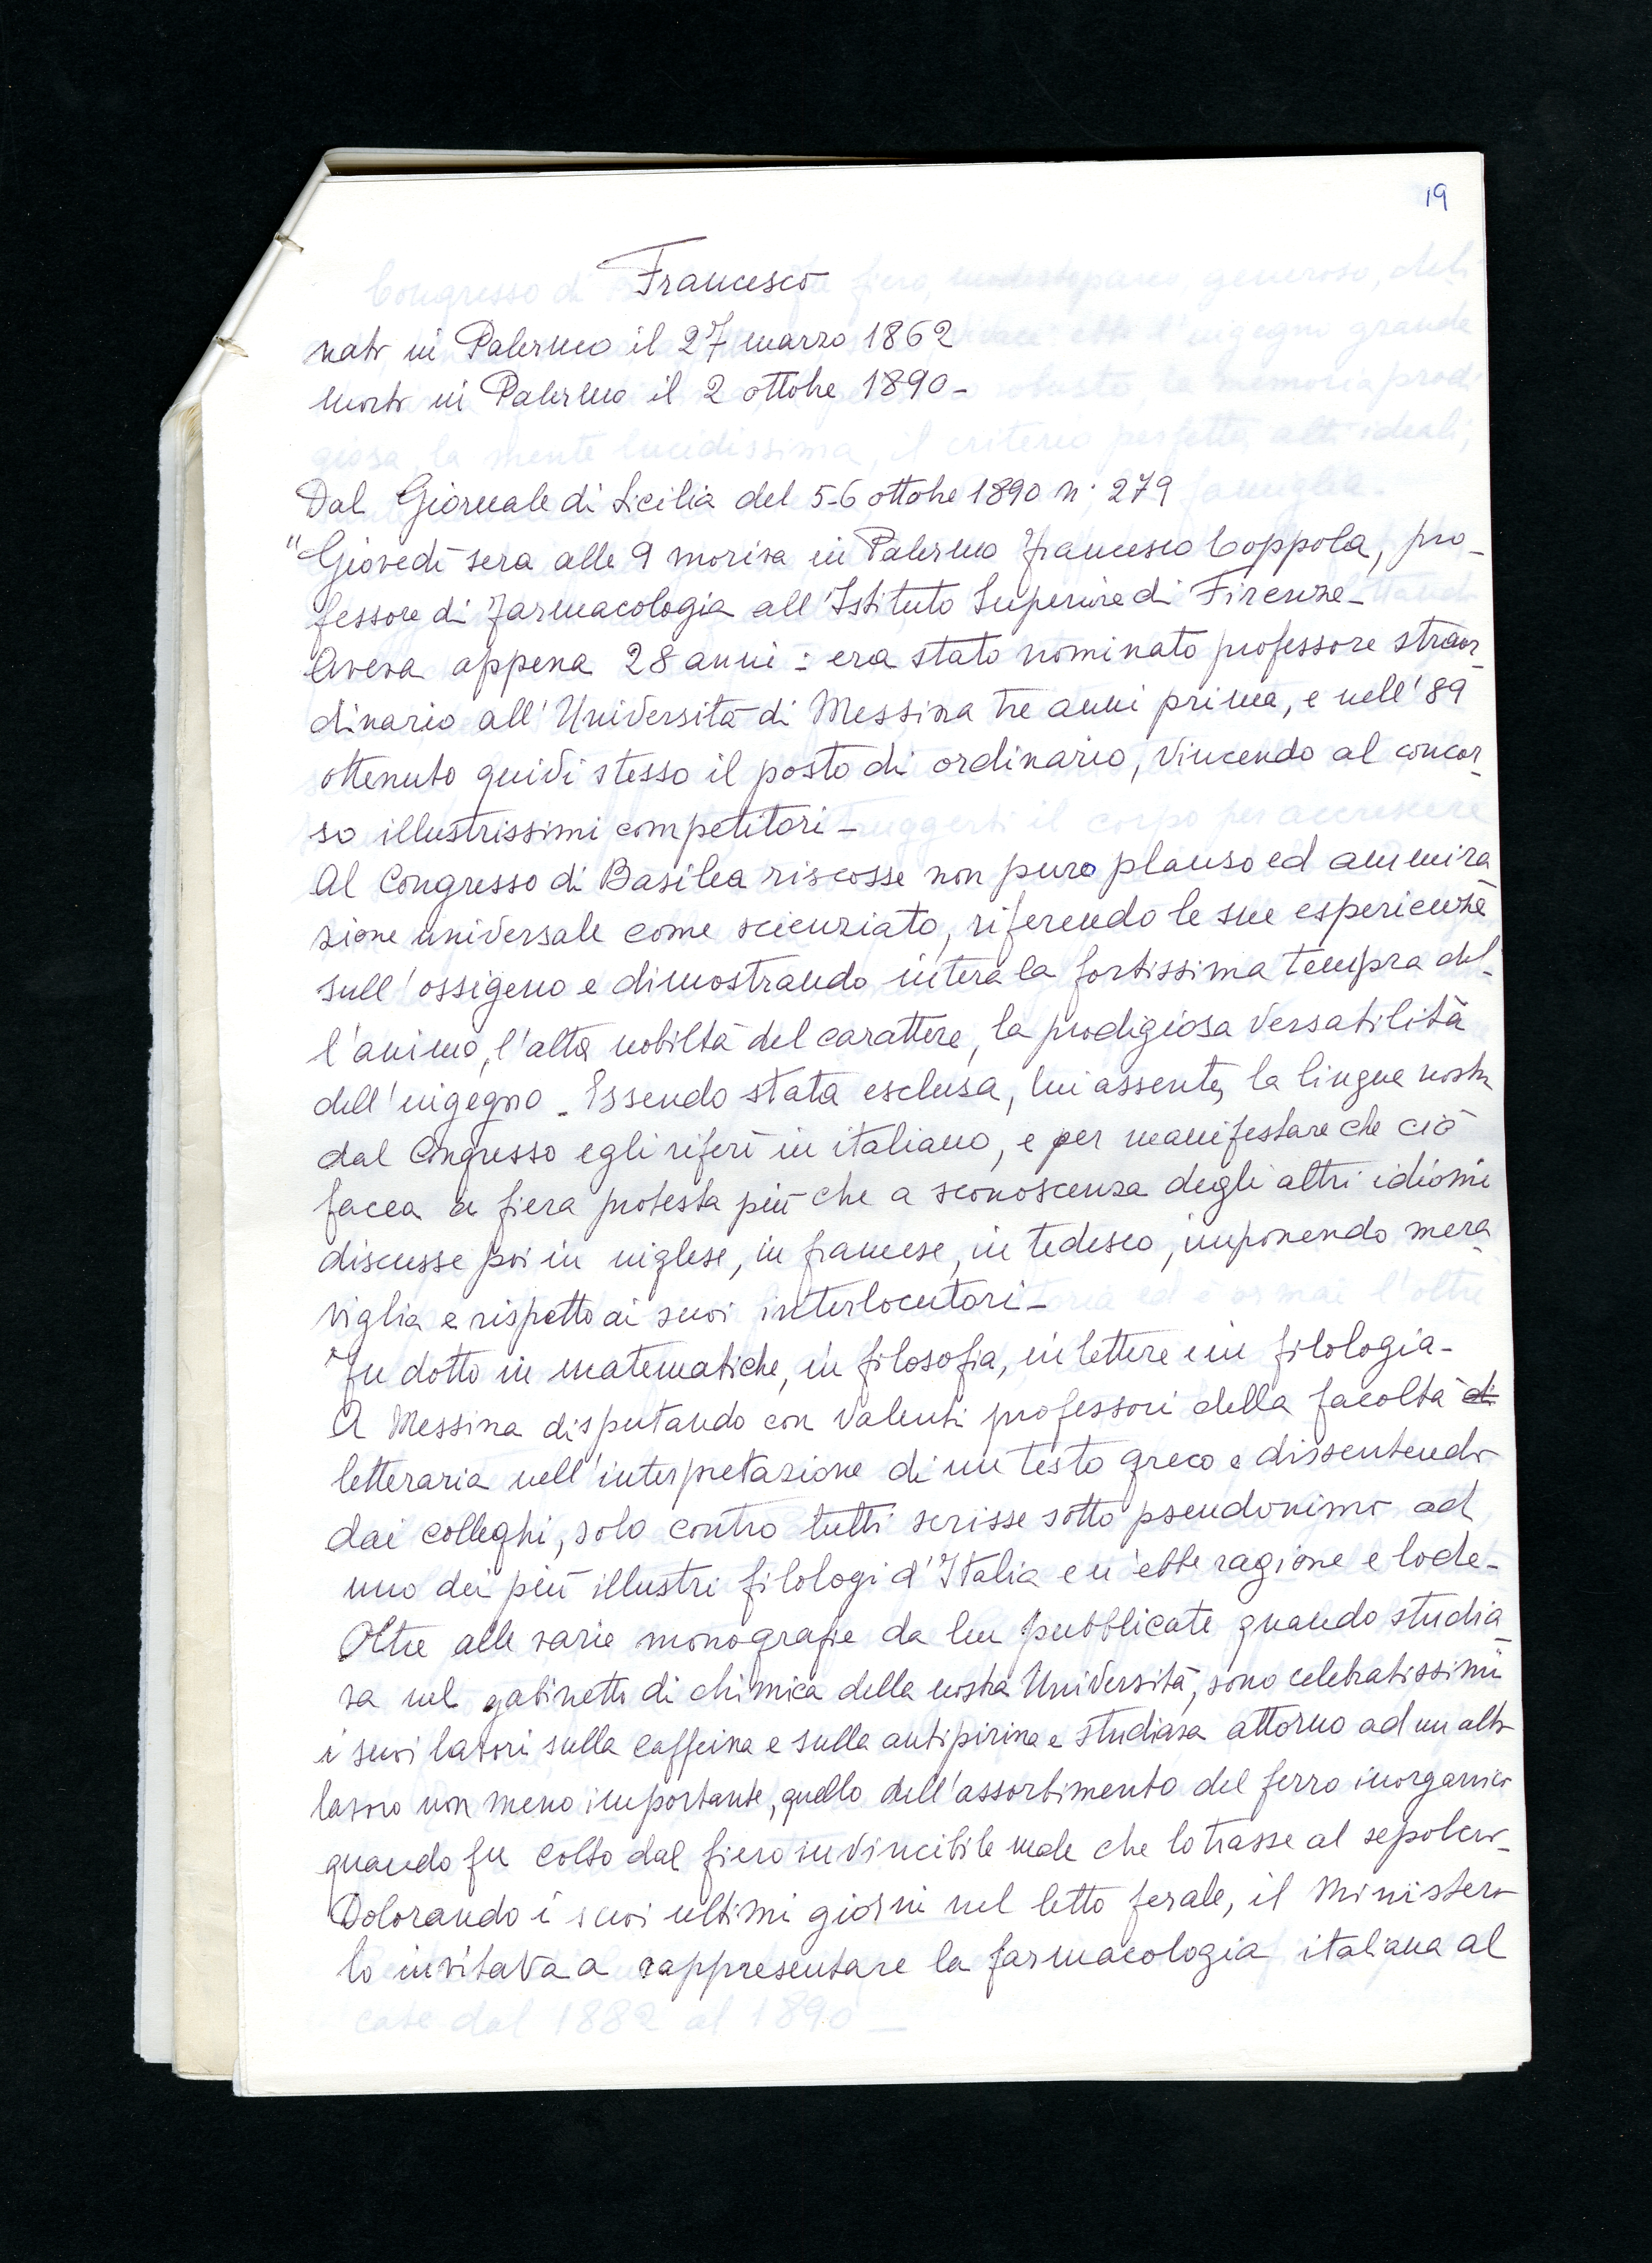 19
Francesco
nato in Palermo il 27 marzo 1862
morto in Palermo il 2 ottobre 1890-
Dal Giornale di Sicilia del 5-6 ottobre 1890 n: 279
"Giovedì sera alle 9 moriva in Palermo Francesco Coppola, pro-
fessore di Farmacologia all'Istituto Superiore di Firenze-
Aveva appena 28 anni: era stato nominato professore straor-
dinario all'Università di Messina tre anni prima, e nell'89
ottenuto quivi stesso il posto di ordinario, vincendo al concor-
so illustrissimi competitori-
Al Congresso di Basilea riscosse non pure plauso ed ammira
zione universale come scienziato, riferendo le sue esperienze
sull'ossigeno e dimostrando intera la fortissima tempra del-
l'animo, l'alta nobiltà del carattere, la prodigiosa versatilità
dell'ingegno. Essendo stata esclusa, lui assente, la lingua nostra
dal Congresso egli riferì in italiano, e per manifestare che ciò
facea a fiera protesta più che a sconoscenza degli altri idiomi
discusse poi in inglese, in francese, in tedesco, imponendo mera-
viglia e rispetto ai suoi interlocutori-
Fu dotto in matematiche, in filosofia, in lettere e in filologia-
A Messina disputando con valenti professori della facoltà di
letteraria nell'interpretazione di un testo greco e dissentendo
dai colleghi, solo contro tutti scrisse sotto pseudonimo ad
uno dei più illustri filologi d'Italia e n'ebbe ragione e lode-
Oltre alle varie monografie da lui pubblicate quando studia-
va nel gabinetto di chimica della nostra Università, sono celebratissimi
i suoi lavori sulla caffeina e sulla antipirina e studiava attorno ad un altro
lavoro non meno importante, quello dell'assorbimento del ferro inorganico
quando fu colto dal fiero invincibile male che lo trasse al sepolcro-
Dolorando i suoi ultimi giorni nel letto ferale, il Ministero
lo invitava a rappresentare la farmacologia italiana al